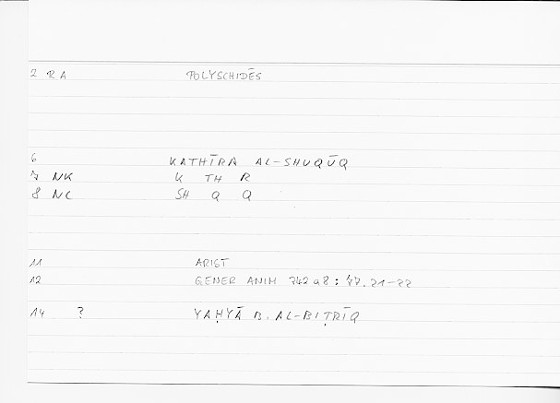 2 RA POLYSCHIDĒS
6 KATHĪRA AL-SHUQŪQ
7 NK K TH R
8 NC SH Q Q
11 ARIST
12 GENER ANIM 742a8 : 77.21-22
14 ? YAḤYĀ B. AL-BIṬRĪQ